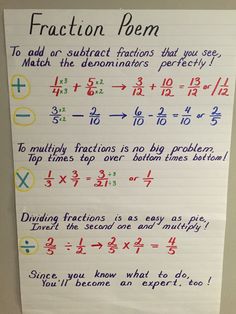 Fraction Poem
To add or subtract fractions that you see,
Match the denominators perfectly!
+ 1/4 ×3 ×3 + 5/6 ×2 ×2 → 3/12 + 10/12 = 13/12 or 1 1/12
− 3/5 ×2 ×2 − 2/10 → 6/10 − 2/10 = 4/10 or 2/5
To multiply fractions is no big problem.
Top times top over bottom times bottom!
× 1/3 × 3/7 = 3/21 ÷3 ÷3 or 1/7
Dividing fractions is as easy as pie,
Invert the second one and multiply!
÷ 2/5 ÷ 1/2 → 2/5 × 2/1 = 4/5
Since you know what to do,
You'll become an expert, too!